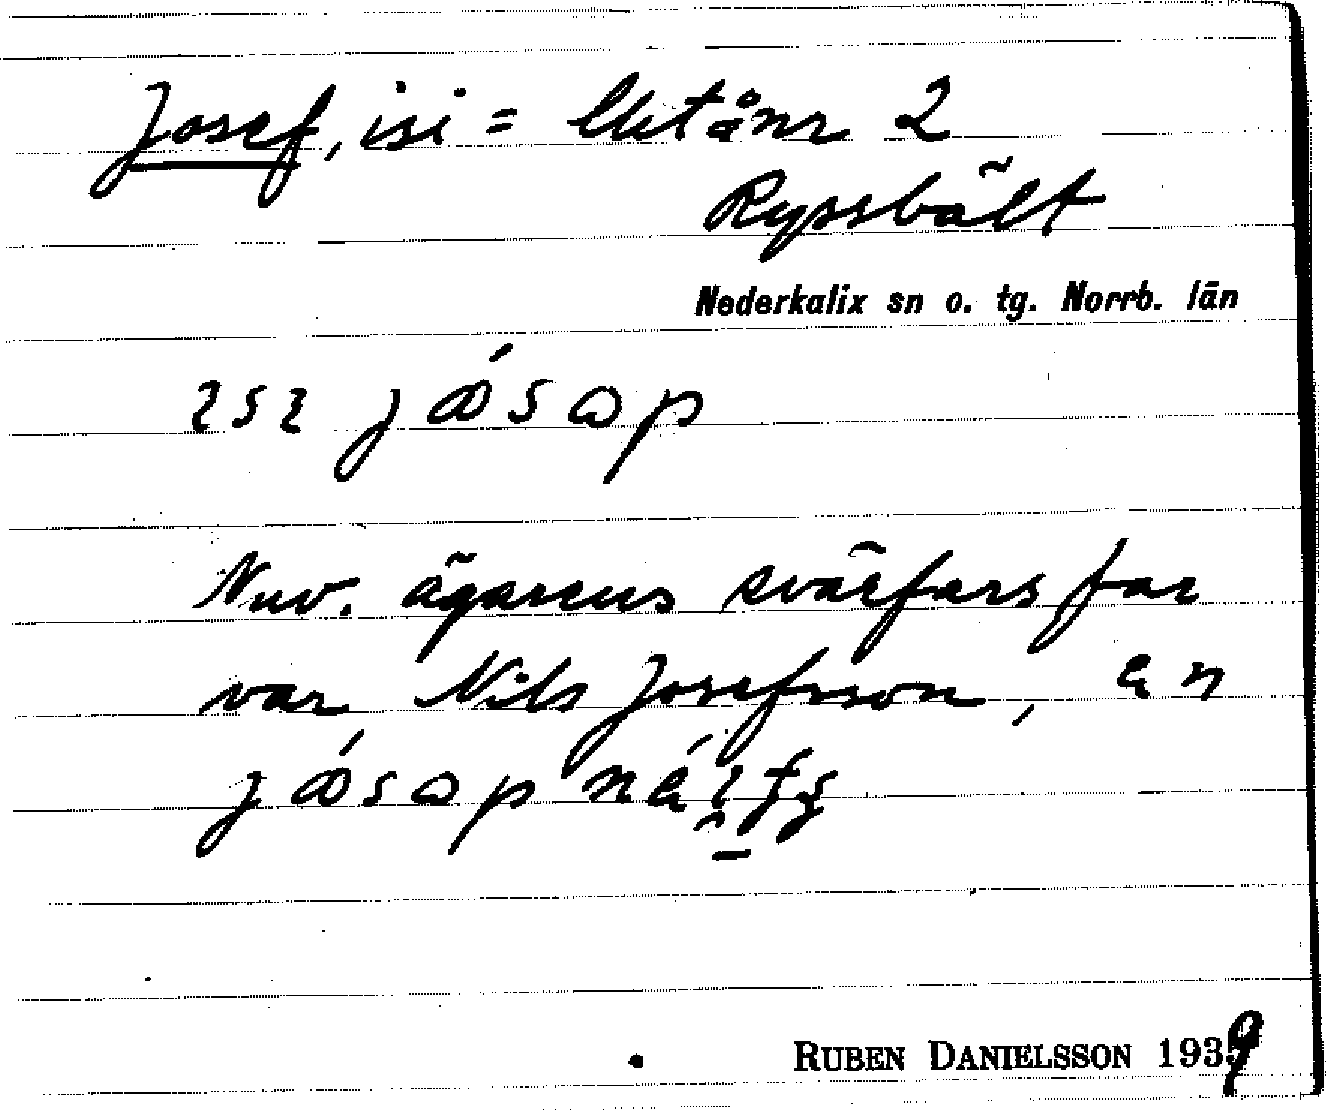 Josef, isi = Utånr 2
Ryssbält
Nederkalix sn o. tg. Norrb. län
ısı jósap
Nuv. ägarens svärfars far
var Nils Josefsson, en
jósap
RUBEN DANIELSSON 1939